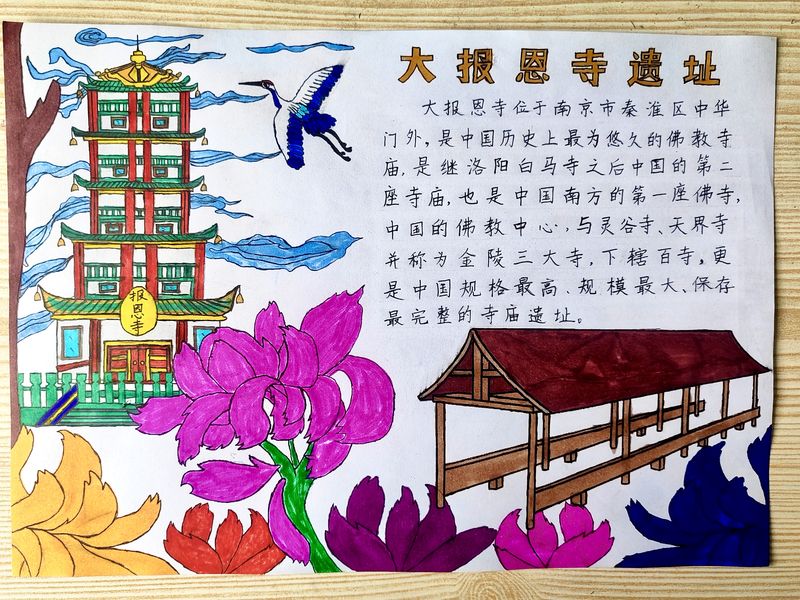 大报恩寺遗址
大报恩寺位于南京市秦淮区中华
门外，是中国历史上最为悠久的佛教寺
庙，是继洛阳白马寺之后中国的第二
座寺庙，也是中国南方的第一座佛寺，
中国的佛教中心，与灵谷寺、天界寺
并称为金陵三大寺，下辖百寺，更
是中国规格最高、规模最大、保存
最完整的寺庙遗址。
报恩寺